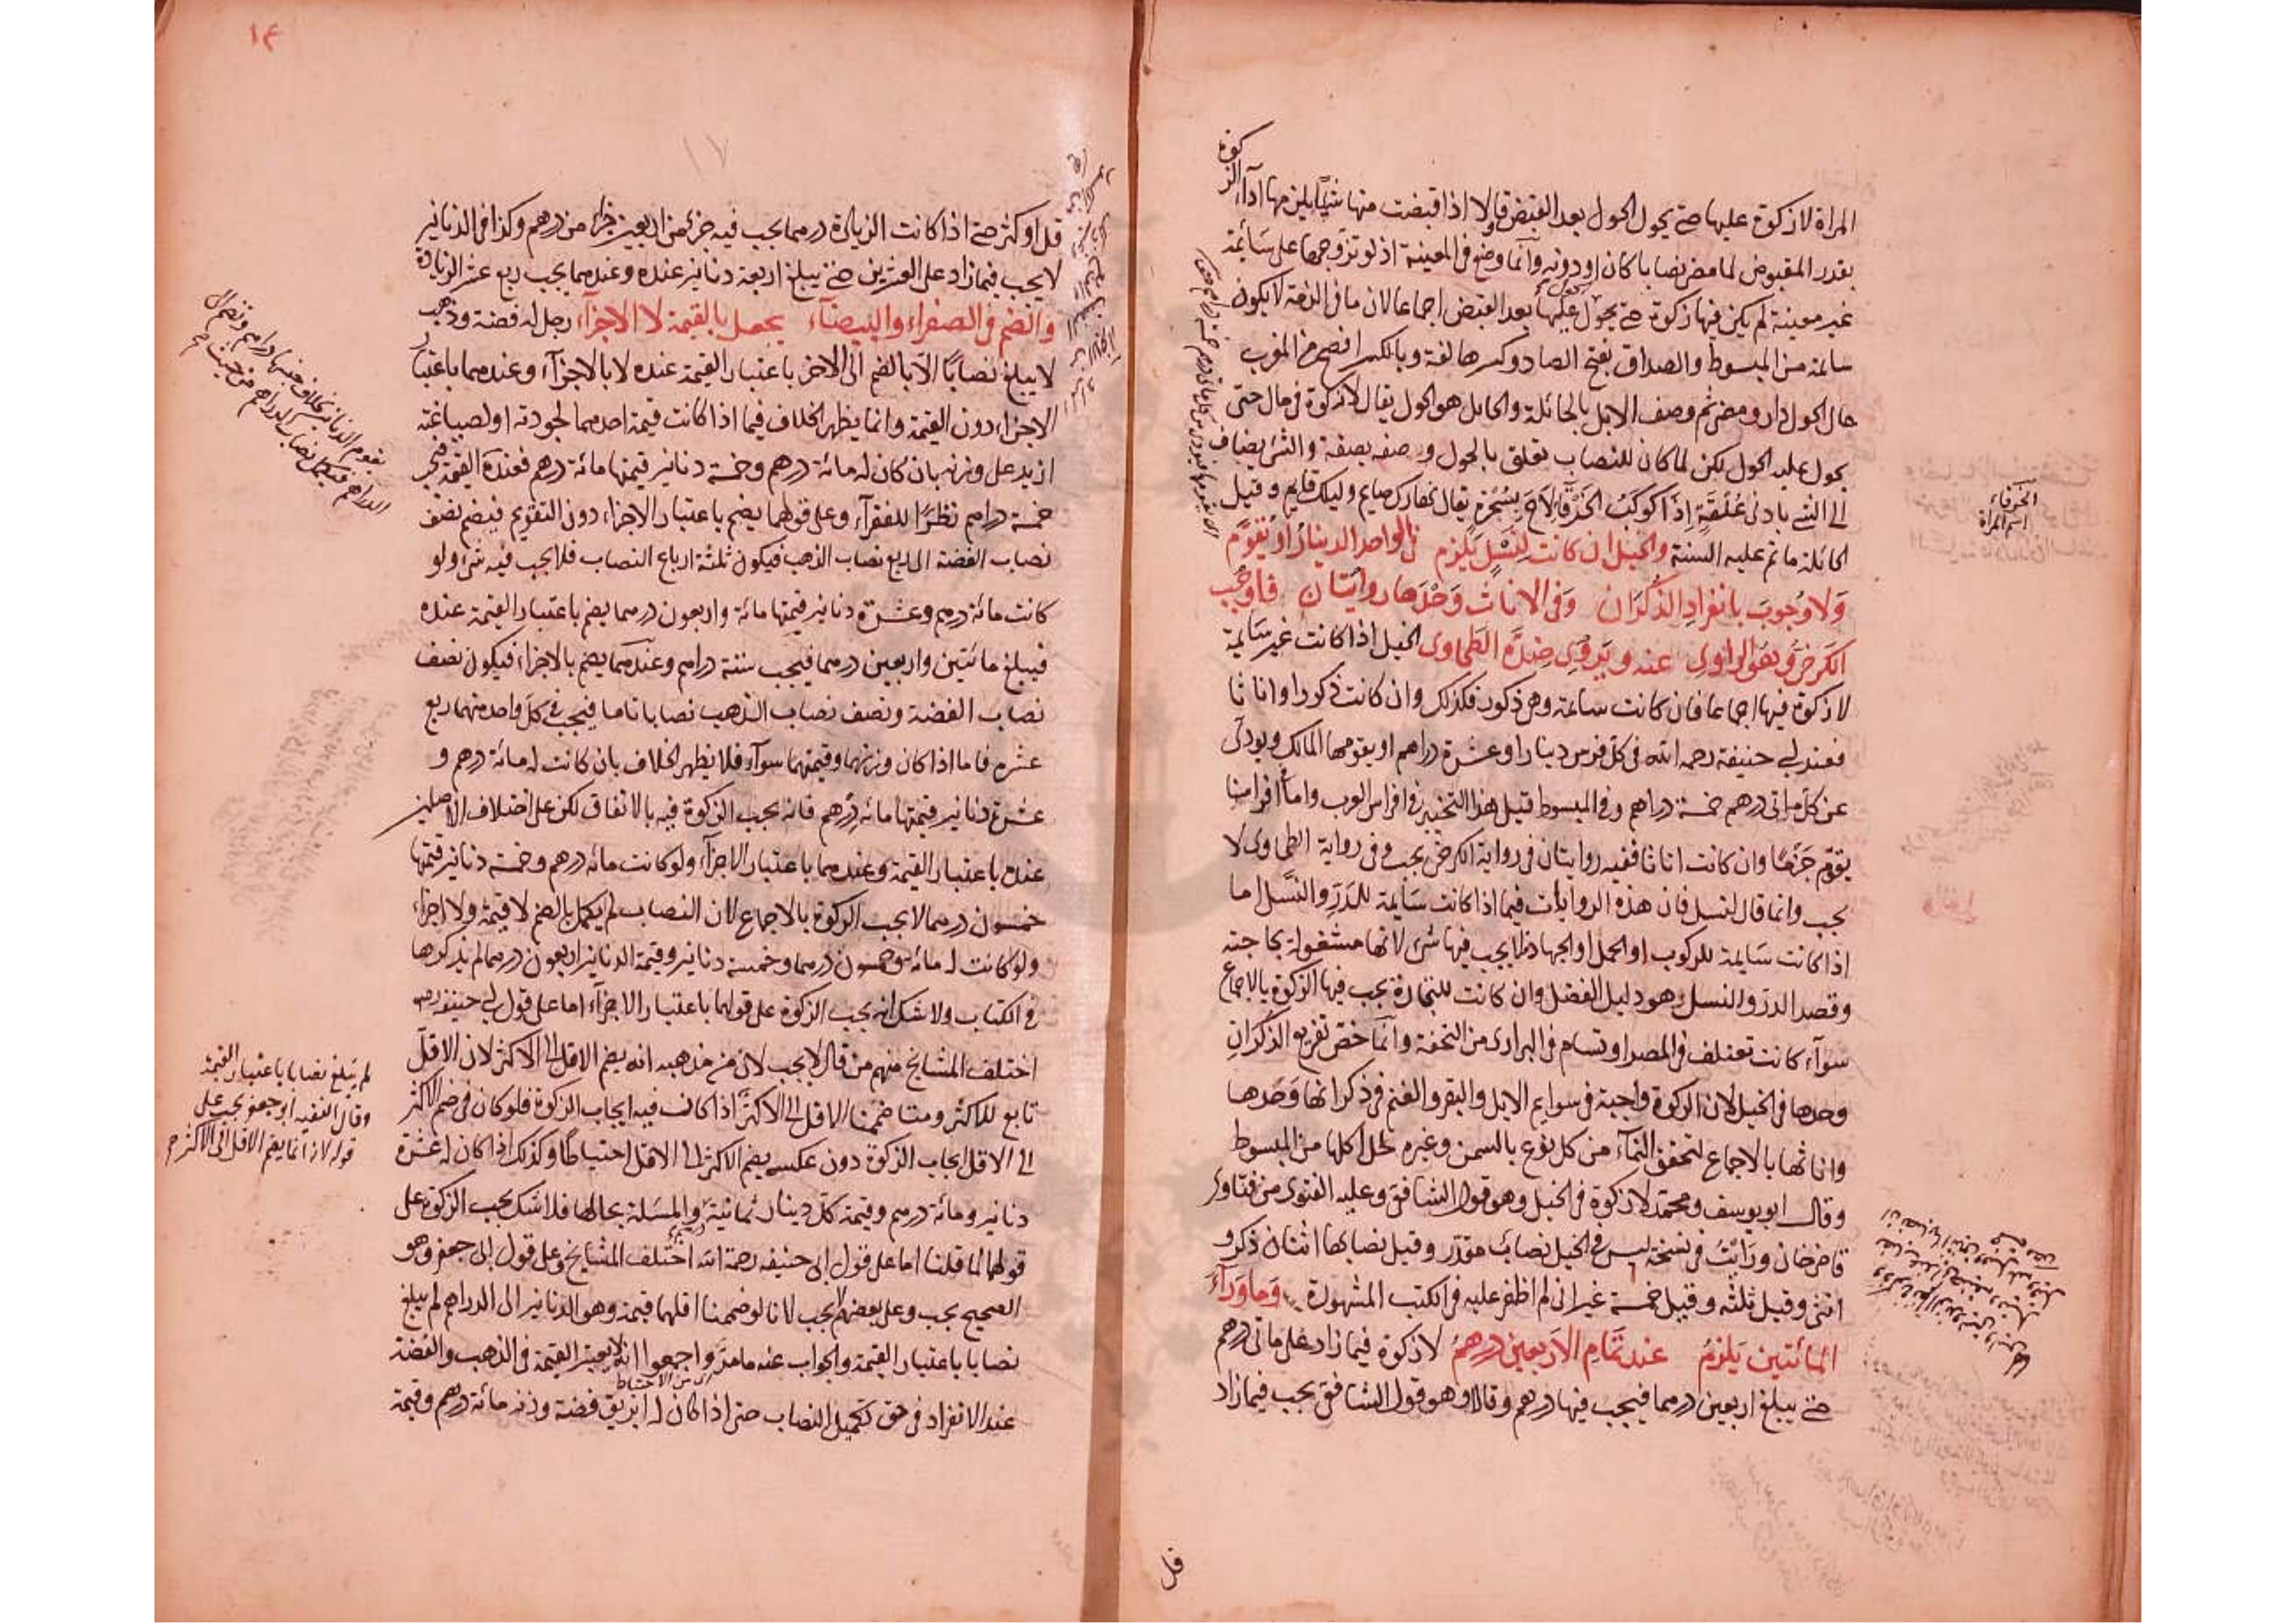 المراة لا زكوة عليها حتى يحول الحول بعد القبض وقالا اذا قبضت منها شيئا يلزمها اداء الزكوة
بقدر المقبوض لما مضى نصابا كان او دونه وانما وضع فى المعينة اذ لو تزوجها على سائمة
غير معينة لم يكن فيها زكوة حتى يحول عليها الحول بعد القبض اجماعا لان ما فى الذمة لا يكون
سائمة من المبسوط والصداق بفتح الصاد وكسرها لغة وبالكسر افصح من المغرب
حال الحول دار ومضى ثم وصف الابل بالحائلة والحائل هو الحول يقال لا زكوة فى مال حتى
يحول عليه الحول لكن لما كان للنصاب تعلق بالحول وصفه بصفة والشئ يضاف
الى الشئ بادنى علقة اذا كوكب الخرقاء لاح بسحرة يقال نهارك صايم وليلك قايم وقيل
الحائلة ما تم عليه السنة والخيل ان كانت لنسل يلزم فى الواحد الدينار او يقوم
ولا وجوب بانفراد الذكران وفى الاناث وحدها روايتان فاوجب
الكرخى وهو الراوى عنه ويروى ضده الطحاوى الخيل اذا كانت غير سايمة
لا زكوة فيها اجماعا فان كانت سائمة وهى ذكور فكذلك وان كانت ذكورا واناثا
فعند ابى حنيفة رحمه الله فى كل فرس دينار او عشرة دراهم او يقومها المالك ويودى
عن كل مائى درهم خمسة دراهم وفى المبسوط قيل هذا التخيير فى افراس العرب واما افراسنا
يقوم جزما وان كانت اناثا ففيه روايتان فى رواية الكرخى يجب وفى رواية الطحاوى لا
يجب وانما قال لنسل فان هذه الروايات فيما اذا كانت سايمة للدر والنسل اما
اذا كانت سايمة للركوب او الحمل او الجهاد فلا يجب فيها شئ لانها مشغولة بحاجته
وقصد الدر والنسل هو دليل الفضل وان كانت للتجارة يجب فيها الزكوة بالاجماع
سواء كانت تعتلف فى المصر او تسام فى البرارى من التحفة وانما خص تفريع الذكران
وحدها فى الخيل لان الزكوة واجبة فى سوايم الابل والبقر والغنم فى ذكرانها وحدها
واناثها بالاجماع لتحقق النماء من كل نوع بالسمن وغيره لحل اكلها من المبسوط
وقال ابو يوسف ومحمد لا زكوة فى الخيل وهو قول الشافعى وعليه الفتوى من فتاوى
قاضيخان ورايت فى نسخة ليس فى الخيل نصاب مقدر وقيل نصابها اثنان ذكر و
انثى وقيل ثلثه وقيل خمسة غير انى لم اظفر عليه فى الكتب المشهورة وما وراء
المائتين يلزم عند تمام الاربعين درهم لا زكوة فيما زاد على مائى درهم
حتى يبلغ اربعين درهما فيجب فيها درهم وقالا وهو قول الشافعى يجب فيما زاد
قل
الخرقاء
اسم المراة
١٤
١٧
قل او كثر حتى اذا كانت الزيادة درهما يجب فيه جزء من اربعين جزءا من درهم وكذا فى الدنانير
لا يجب فيما زاد على العشرين حتى يبلغ اربعة دنانير عنده وعندهما يجب ربع عشر الزيادة
والضم فى الصفراء والبيضاء يحصل بالقيمة لا الاجزاء رجل له فضة وذهب
لا يبلغ نصابا الا بالضم الى الاخر باعتبار القيمة عنده لا بالاجزاء وعندهما باعتبار
الاجزاء دون القيمة وانما يظهر الخلاف فيما اذا كانت قيمة احدهما لجودته او لصياغته
ازيد على وزنه بان كان له مائة درهم وخمسة دنانير قيمتها مائة درهم فعنده القيمة فيجب
خمسة دراهم نظرا للفقراء وعلى قولهما يضم باعتبار الاجزاء دون التقويم فيضم نصف
نصاب الفضة الى ربع نصاب الذهب فيكون ثلثة ارباع النصاب فلا يجب فيه شئ ولو
كانت مائة درهم وعشرة دنانير قيمتها مائة واربعون درهما يضم باعتبار القيمة عنده
فيبلغ مائتين واربعين درهما فيجب ستة دراهم وعندهما يضم بالاجزاء فيكون نصف
نصاب الفضة ونصف نصاب الذهب نصابا تاما فيجب فى كل واحد منهما ربع
عشره فاما اذا كان وزنهما وقيمتهما سواء فلا يظهر الخلاف بان كانت له مائة درهم و
عشرة دنانير قيمتها مائة درهم فانه يجب الزكوة فيه بالاتفاق لكن على اختلاف الاصلين
عنده باعتبار القيمة وعندهما باعتبار الاجزاء ولو كانت مائة درهم وخمسة دنانير قيمتها
خمسون درهما لا يجب الزكوة بالاجماع لان النصاب لم يكمل بالضم لا قيمة ولا اجزاء
ولو كانت له مائة وخمسون درهما وخمسة دنانير وقيمة الدنانير اربعون درهما لم يذكرها
فى الكتاب ولا شك انه يجب الزكوة على قولهما باعتبار الاجزاء اما على قول ابى حنيفة رحمه
اختلف المشايخ منهم من قال لا يجب لان من مذهبه انه يضم الاقل الى الاكثر لان الاقل
تابع للاكثر ومتى ضممنا الاقل الى الاكثر اذا كانت فيه ايجاب الزكوة فلو كان فى ضم الاكثر
الى الاقل ايجاب الزكوة دون عكسه يضم الاكثر الى الاقل احتياطا وكذلك اذا كان له عشرة
دنانير ومائة درهم وقيمة كل دينار ثمانية والمسئلة بحالها فلا شك يجب الزكوة على
قولهما لما قلنا اما على قول ابى حنيفة رحمة الله اختلف المشايخ وعلى قول ابى جعفر وهو
الصحيح يجب وعلى بعضهم لا يجب لانا لو ضممنا اقلهما قيمة وهو الدنانير الى الدراهم لم يبلغ
نصابا باعتبار القيمة والجواب عنه ما مر واجمعوا انه لا يعتبر القيمة فى الذهب والفضة
من الاحتياط
عند الانفراد فى حق تكميل النصاب حتى اذا كان له ابريق فضة وزنه مائة درهم وقيمة
لم يبلغ نصابا باعتبار القيمة
وقال الفقيه ابو جعفر يجب على
قوله لانه انما يضم الاقل الى الاكثر